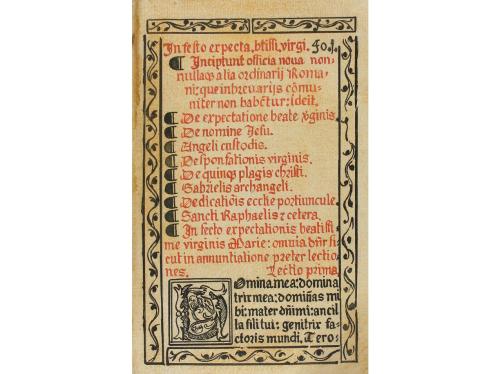 In festo expecta. btissi. virgi. Fo.j.
¶ Incipiunt officia noua non-
nullaqʒ alia ordinarij Roma
ni: que in breuarijs cõmu
niter non habẽtur: ideſt.
¶ De expectatione beate v̄ginis.
¶ De nomine Jesu.
¶ Angeli custodis.
¶ Desponsationis virginis.
¶ De quinqʒ plagis christi.
¶ Gabrielis archangeli.
¶ Dedicatiõis ecclie portiuncule.
¶ Sancti Raphaelis ⁊ cetera.
¶ In festo expectationis beatissi
me virginis Marie: omnia dñr si
cut in annuntiatione preter lectio
nes. Lectio prima.
Domina mea: domina
trix mea: domiñas mi
hi: mater dñi mi: ancil
la filii tui: genitrix fac
toris mundi. Te ro: